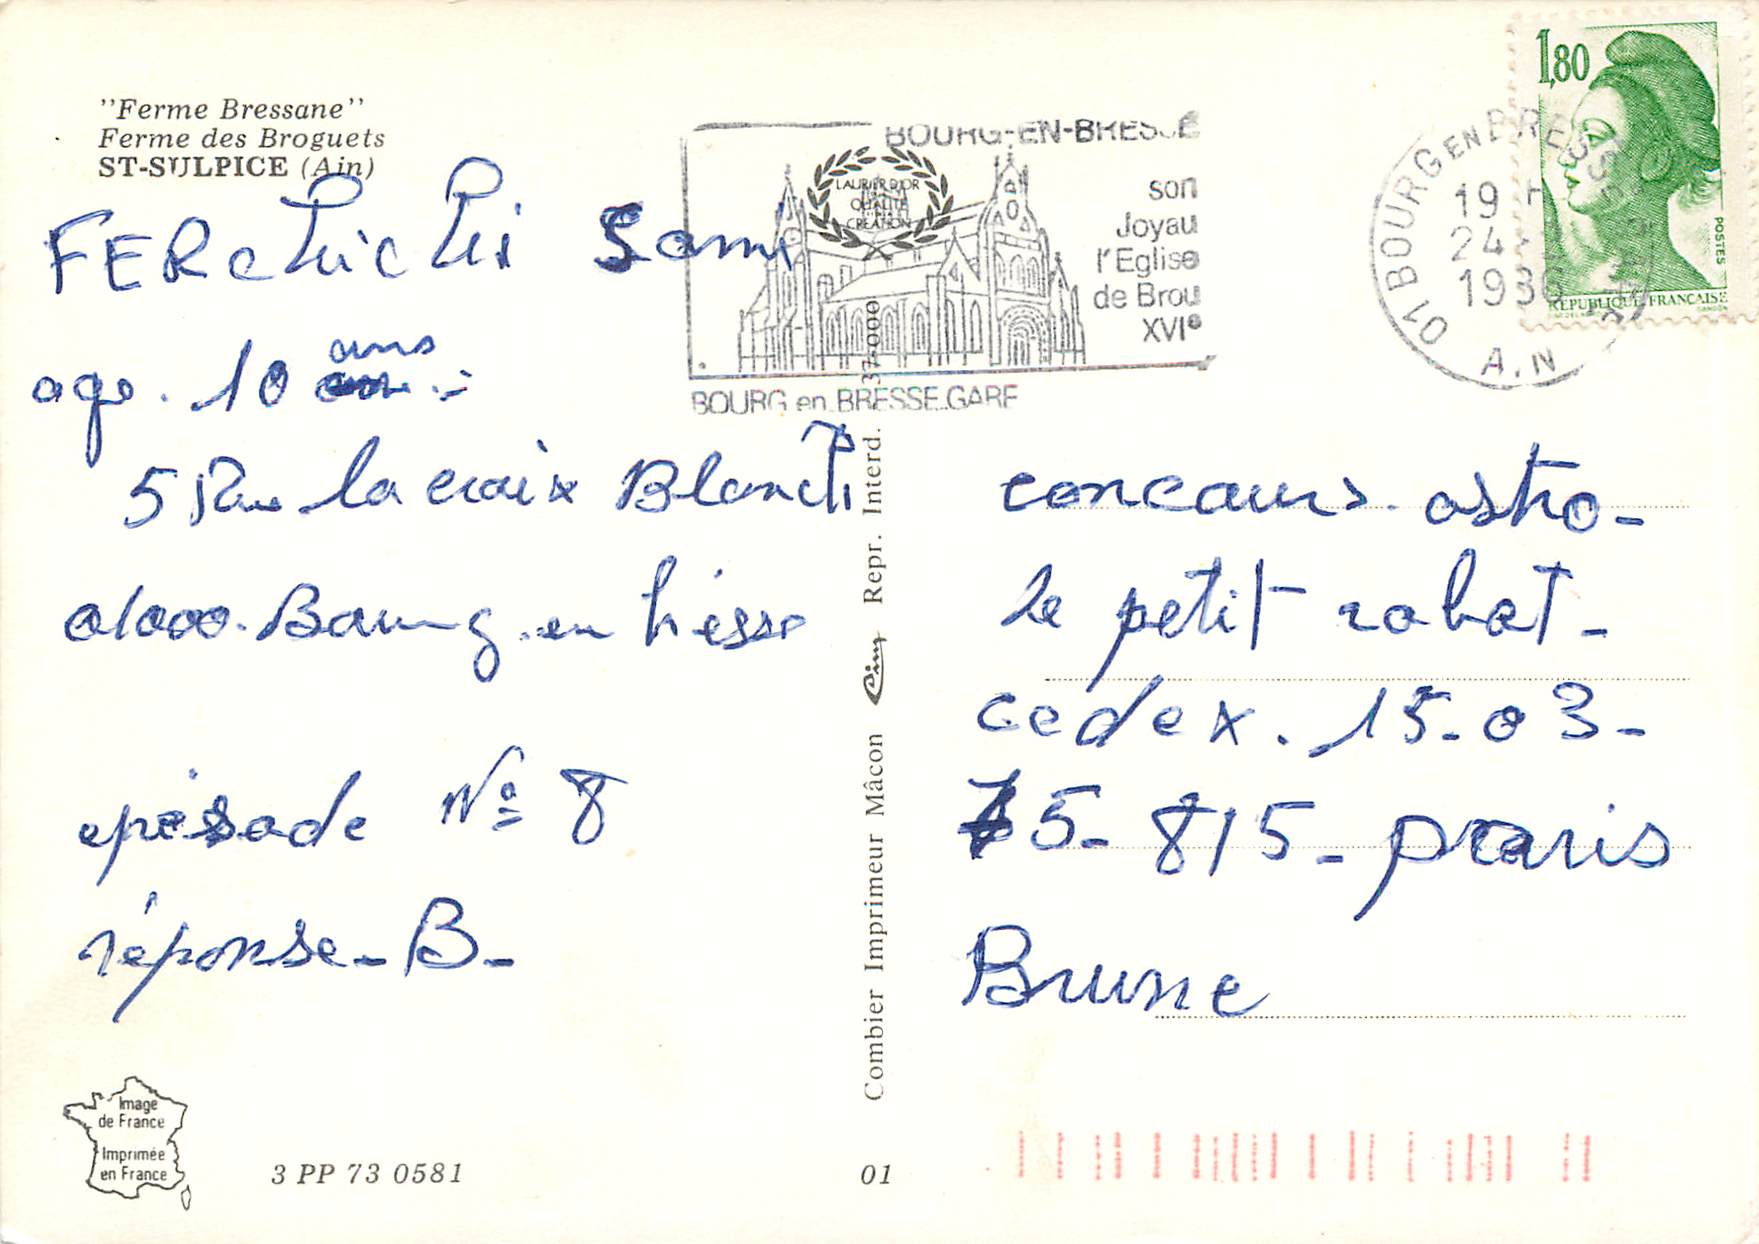 ''Ferme Bressane''
Ferme des Broguets
ST-SULPICE (Ain)
FERchichi Sami
age. 10 ans
5 Rue la croix Blanch
01000. Bourg. en bresse
episode No 8
réponse - B -
Image
de France
Imprimée
en France
3 PP 73 0581
01
Combier Imprimeur Mâcon Cim Repr. Interd. 37-000
BOURG-EN-BRESSE
son
Joyau
l'Eglise
de Brou
XVIe
BOURG en BRESSE GARE
LAURIER D'OR
QUALITE
CREATION
01 BOURG EN BRESSE
19 H
24
1986
AIN
1,80
POSTES
REPUBLIQUE FRANCAISE
GANDON
concours. astro -
le petit robot -
cedex. 15 - 03 -
75 - 815 - praris
Brune